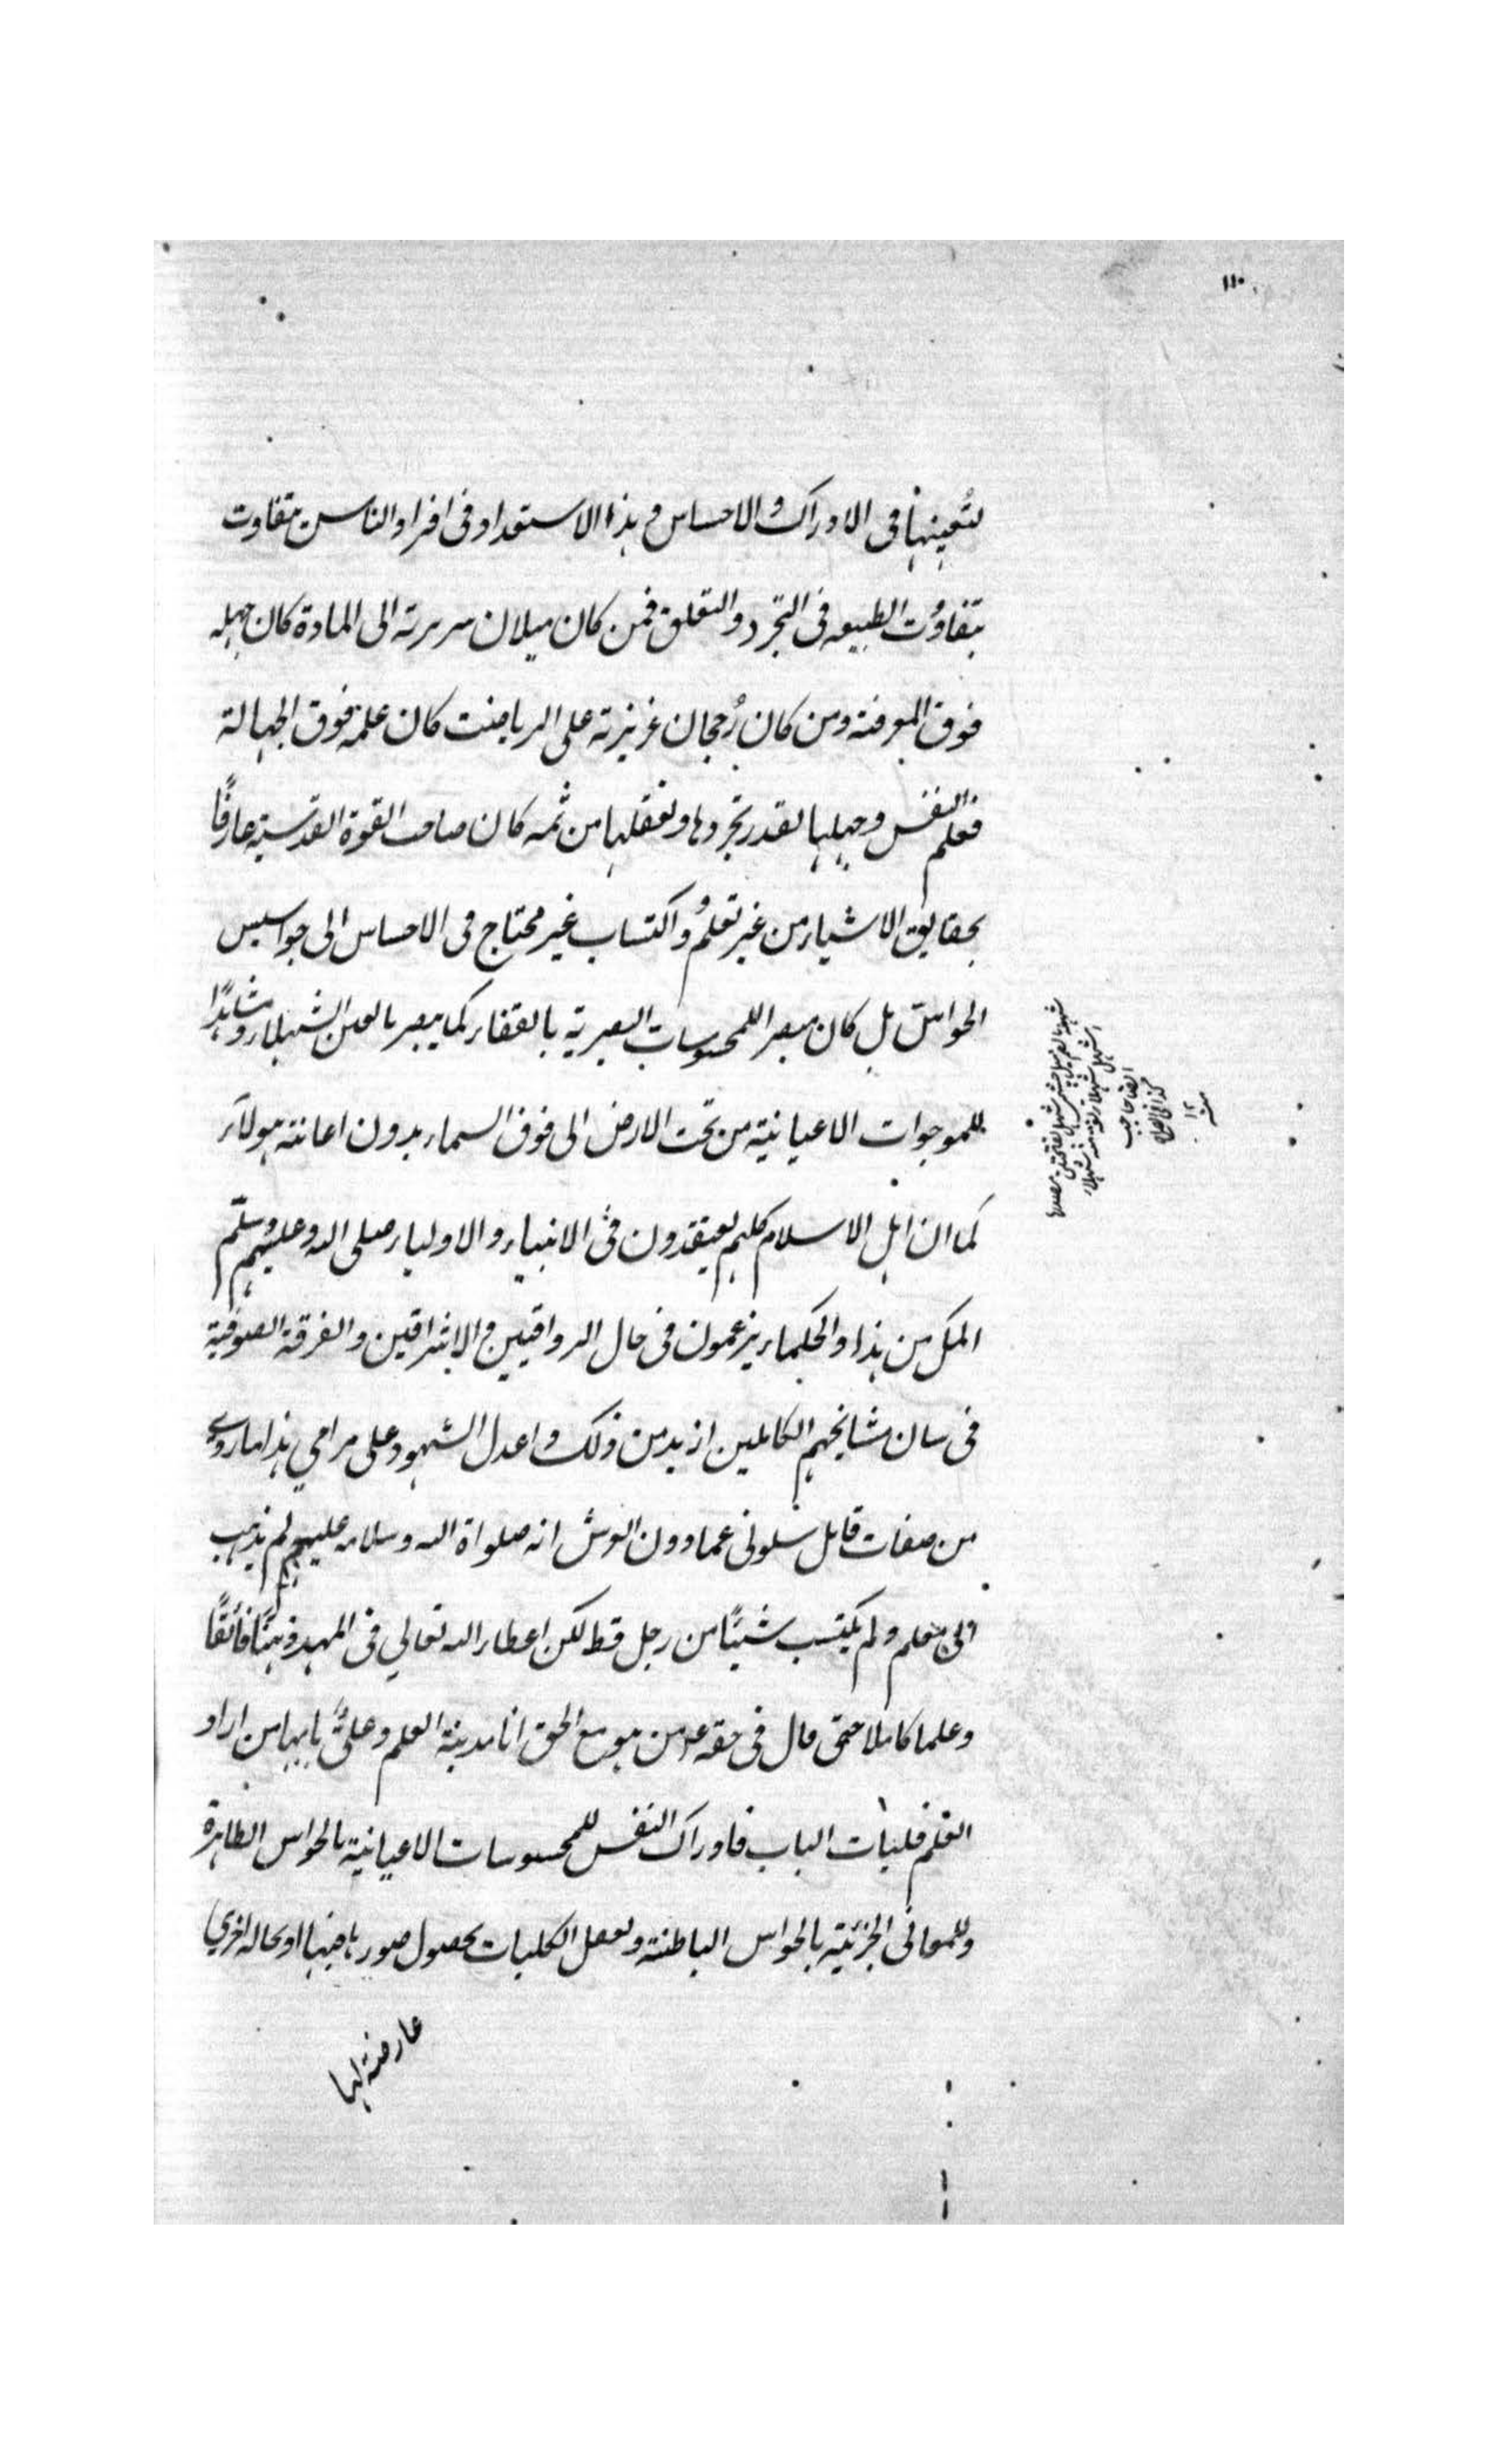 ١١٠
لتُعينها فى الادراك والاحساس وهذا الاستعداد فى افراد الناس متفاوت
بتفاوُت الطبيعه فى التجرد والتعلق فمن كان ميلان سريرته الى المادة كان جهله
فوق المعرفة ومن كان رُجحان غريزته على الرياضت كان علمه فوق الجهالة
فعلم النفس وجهلها بقدر تجردها وتعقلها من ثمه كان صاحب القوة القدسية عارفًا
بحقايق الاشياء من غير تعلُم واكتساب غير محتاج فى الاحساس الى جواسيس
الحواس بل كان مبصرا للمحسوسات البصرية بالقفاء كما يبصر بالعين الشهلاء ومشاهدًا
للموجوات الاعيانية من تحت الارض الى فوق السماء بدون اعانته هولاء
كما ان اهل الاسلام كلهم يعتقدون فى الانبياء والاولياء صلى الله وعليهم وسلّم
المكل من هذا والحكماء يزعمون فى حال الرواقيين والاشراقين والفرقة الصوفية
فى سان مشايخهم الكاملين ازيد من ذلك واعدل الشهود على مرامي هذا ما روى
من صفات قايل سلونى عما دون العرش انه صلواة الله وسلامه عليهم لم يذهب
الى معلم ولم يكتسب شيئًا من رجل قط لكن اعطاء الله تعالي فى المهد ذهنًا فائقًا
وعلما كاملا حتى قال فى حقه من هو مع الحق انا مدينة العلم وعلىٌ بابها من اراد
العلم فليأت الباب فادراك النفس للمحسوسات الاعيانية بالحواس الظاهرة
وللمعانى الجزئية بالحواس الباطنة ولعقل الكليات بحصول صورها فيها او بحاله اخري
عارضة لها
منه
١٢